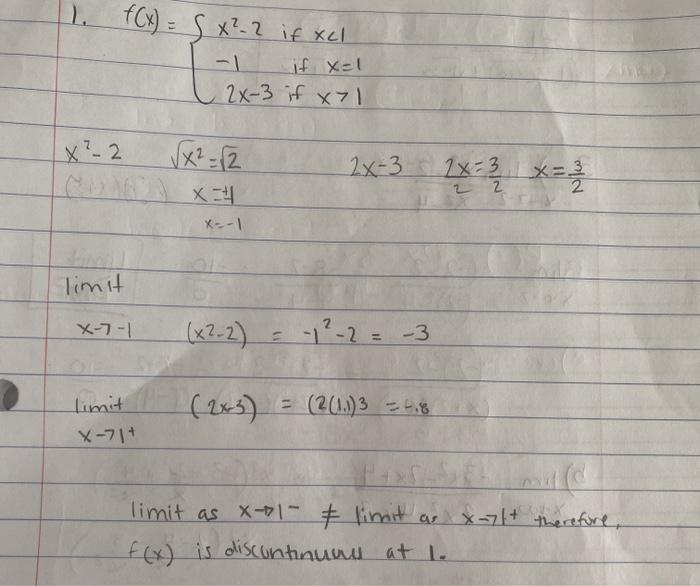 1. f(x) = { x²-2 if x<1
-1 if x=1
2x-3 if x>1
x²-2 √x²=√2 2x-3 2x=3 x=3/2
2 2
x=±1
x=-1
limit
x→-1 (x²-2) = -1²-2 = -3
limit (2x-3) = (2(1.1)3 = -.8
x→1+
limit as x→1- ≠ limit as x→1+ therefore,
f(x) is discontinuous at 1.